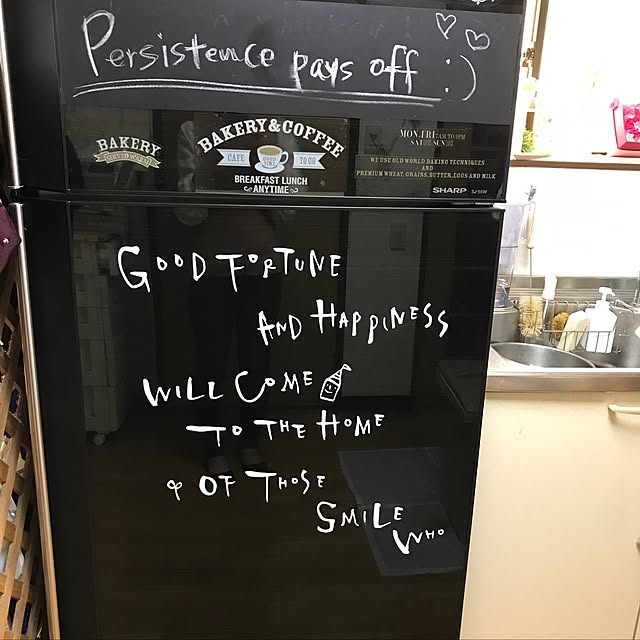 Persistence pays off :)
BAKERY
BAKERY & COFFEE
CAFE
GOOD TIME
TO GO
BREAKFAST LUNCH
ANYTIME
MON.FRI 7AM TO 9PM
WE USE OLD WORLD BAKING TECHNIQUES
AND
PREMIUM WHEAT, GRAINS, BUTTER, EGGS AND MILK
SHARP
GOOD FORTUNE
AND HAPPINESS
WILL COME
TO THE HOME
OF THOSE
SMILE
WHO